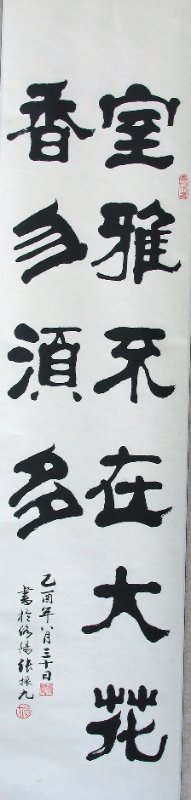 室雅不在大花
香勿須多
乙酉年八月三十日
書於洛陽張振九